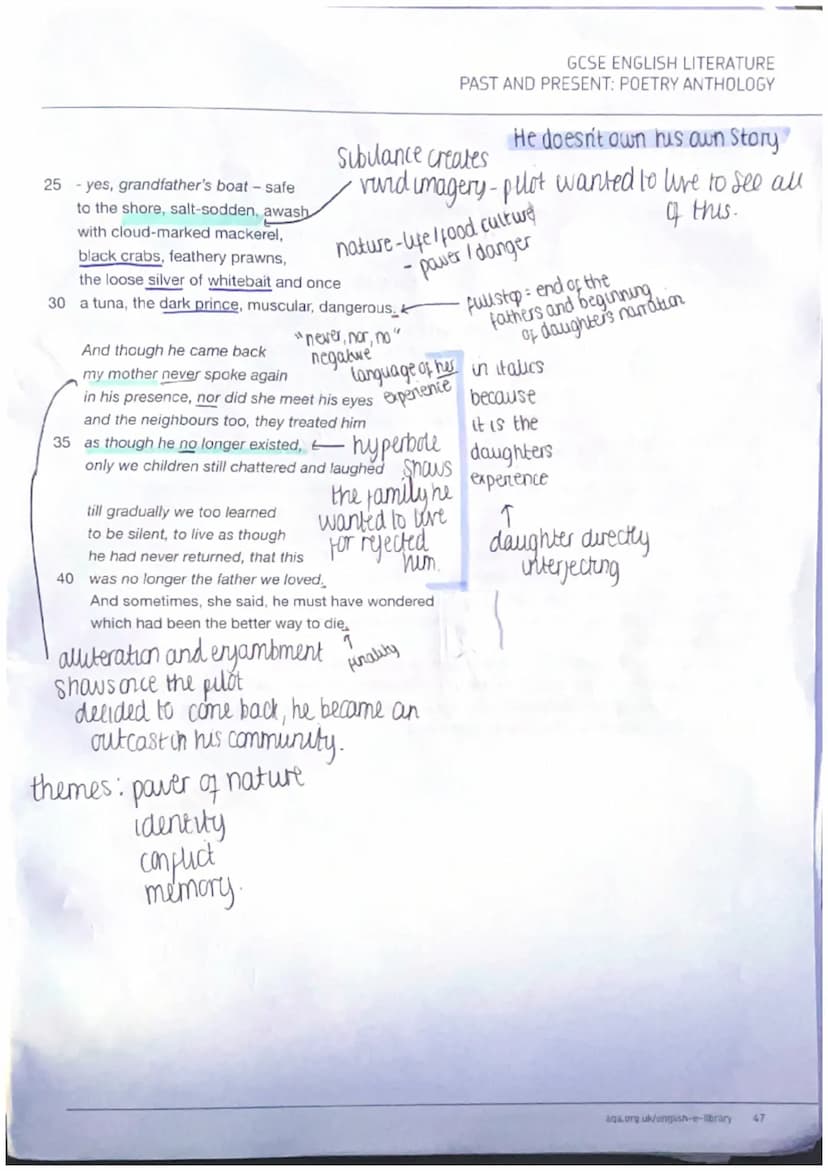 GCSE ENGLISH LITERATURE
PAST AND PRESENT: POETRY ANTHOLOGY
He doesn't own his own Story
Sibilance creates
vivid imagery - pilot wanted to live to see all
of this.
25 - yes, grandfather's boat – safe
to the shore, salt-sodden, awash
with cloud-marked mackerel,
black crabs, feathery prawns,
the loose silver of whitebait and once
30 a tuna, the dark prince, muscular, dangerous.
nature - life / food culture
- power / danger
full stop = end of the
fathers and beginning
of daughters narration
And though he came back
my mother never spoke again
in his presence, nor did she meet his eyes
and the neighbours too, they treated him
35 as though he no longer existed,
only we children still chattered and laughed
"never, nor, no"
negative
language of her
experience
hyperbole
shows
the family he
wanted to live
for rejected
him.
in italics
because
it is the
daughters
experience
↑
daughter directly
interjecting
till gradually we too learned
to be silent, to live as though
he had never returned, that this
40 was no longer the father we loved.
And sometimes, she said, he must have wondered
which had been the better way to die.
↑
finality
alliteration and enjambment
shows once the pilot
decided to come back, he became an
outcast in his community.
themes: power of nature
identity
conflict
memory.
aqa.org.uk/english-e-library 47